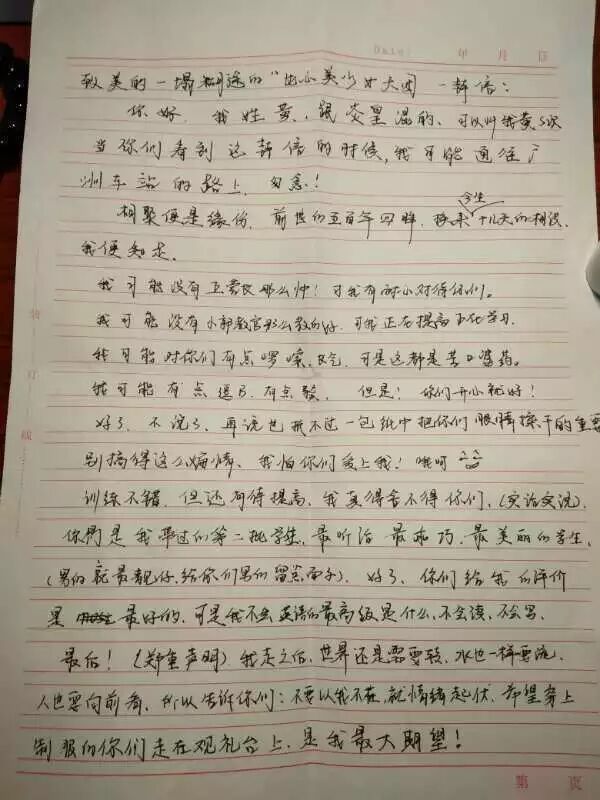 Date: 年 月 日
致美的一塌糊涂的“ 美少女大团 一封信：
你好，我姓黄，混的，可以叫我黄
当你们看到这封信的时候，我可能通往广
州车站的路上，勿念！
相聚便是缘份，前世的五百年回眸，换来今生十几天的相识，
我便知足。
我可能没有王 那么帅！可我有耐心对待你们。
我可能没有 教官那么教的好，可我正在提高 学习，
我可能对你们有点啰嗦， 可是这都是苦口婆药。
我可能有点逗B，有点 ，但是！你们开心就好！
好了，不说了，再说也抵不过一包纸巾把你们眼睛擦干的重要
别搞得这么煽情，我怕你们爱上我！哦呵
训练不错，但还有待提高，我真得舍不得你们，（实话实说）
你們是我带过的第二批学生，最听话 最乖巧，最美丽的学生，
（男的就最靓仔，给你们男的留点面子）。好了，你们给我的评价
是 最好的，可是我不会英语的最高级是什么，不会读，不会写，
最后！（郑重声明）我走之后，世界还是需要转，水也一样要流，
人也要向前看，所以告诉你们：不要以我不在，就情绪起伏，希望穿上
制服的你们走在观礼台上，是我最大期望！
装 订 线
第 页